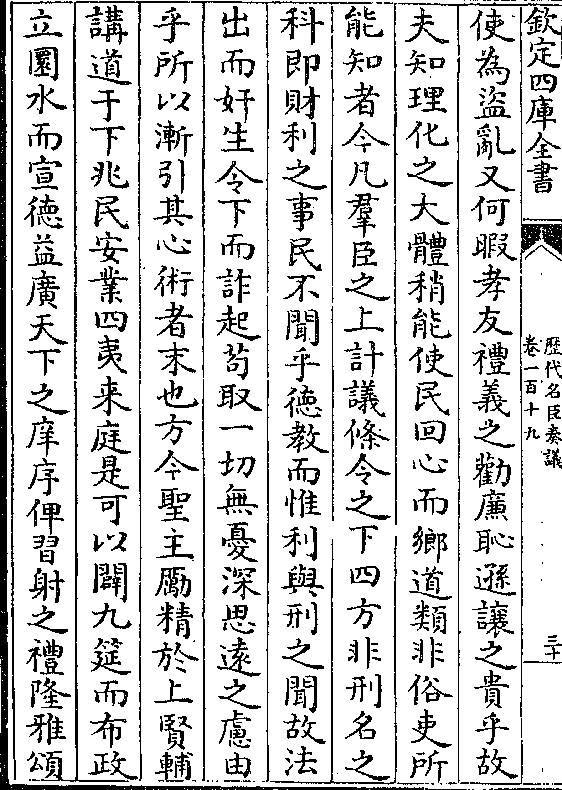 欽定四庫全書
歷代名臣奏議
卷一百十九
三十
使為盜亂又何暇孝友禮義之勸廉恥遜讓之貴乎故
夫知理化之大體稍能使民回心而鄉道類非俗吏所
能知者今凡羣臣之上計議條令之下四方非刑名之
科即財利之事民不聞乎德教而惟利與刑之聞故法
出而奸生令下而詐起苟取一切無憂深思遠之慮由
乎所以漸引其心術者末也方今聖主勵精於上賢輔
講道于下兆民安業四夷来庭是可以闢九筵而布政
立圜水而宣德益廣天下之庠序俾習射之禮隆雅頌